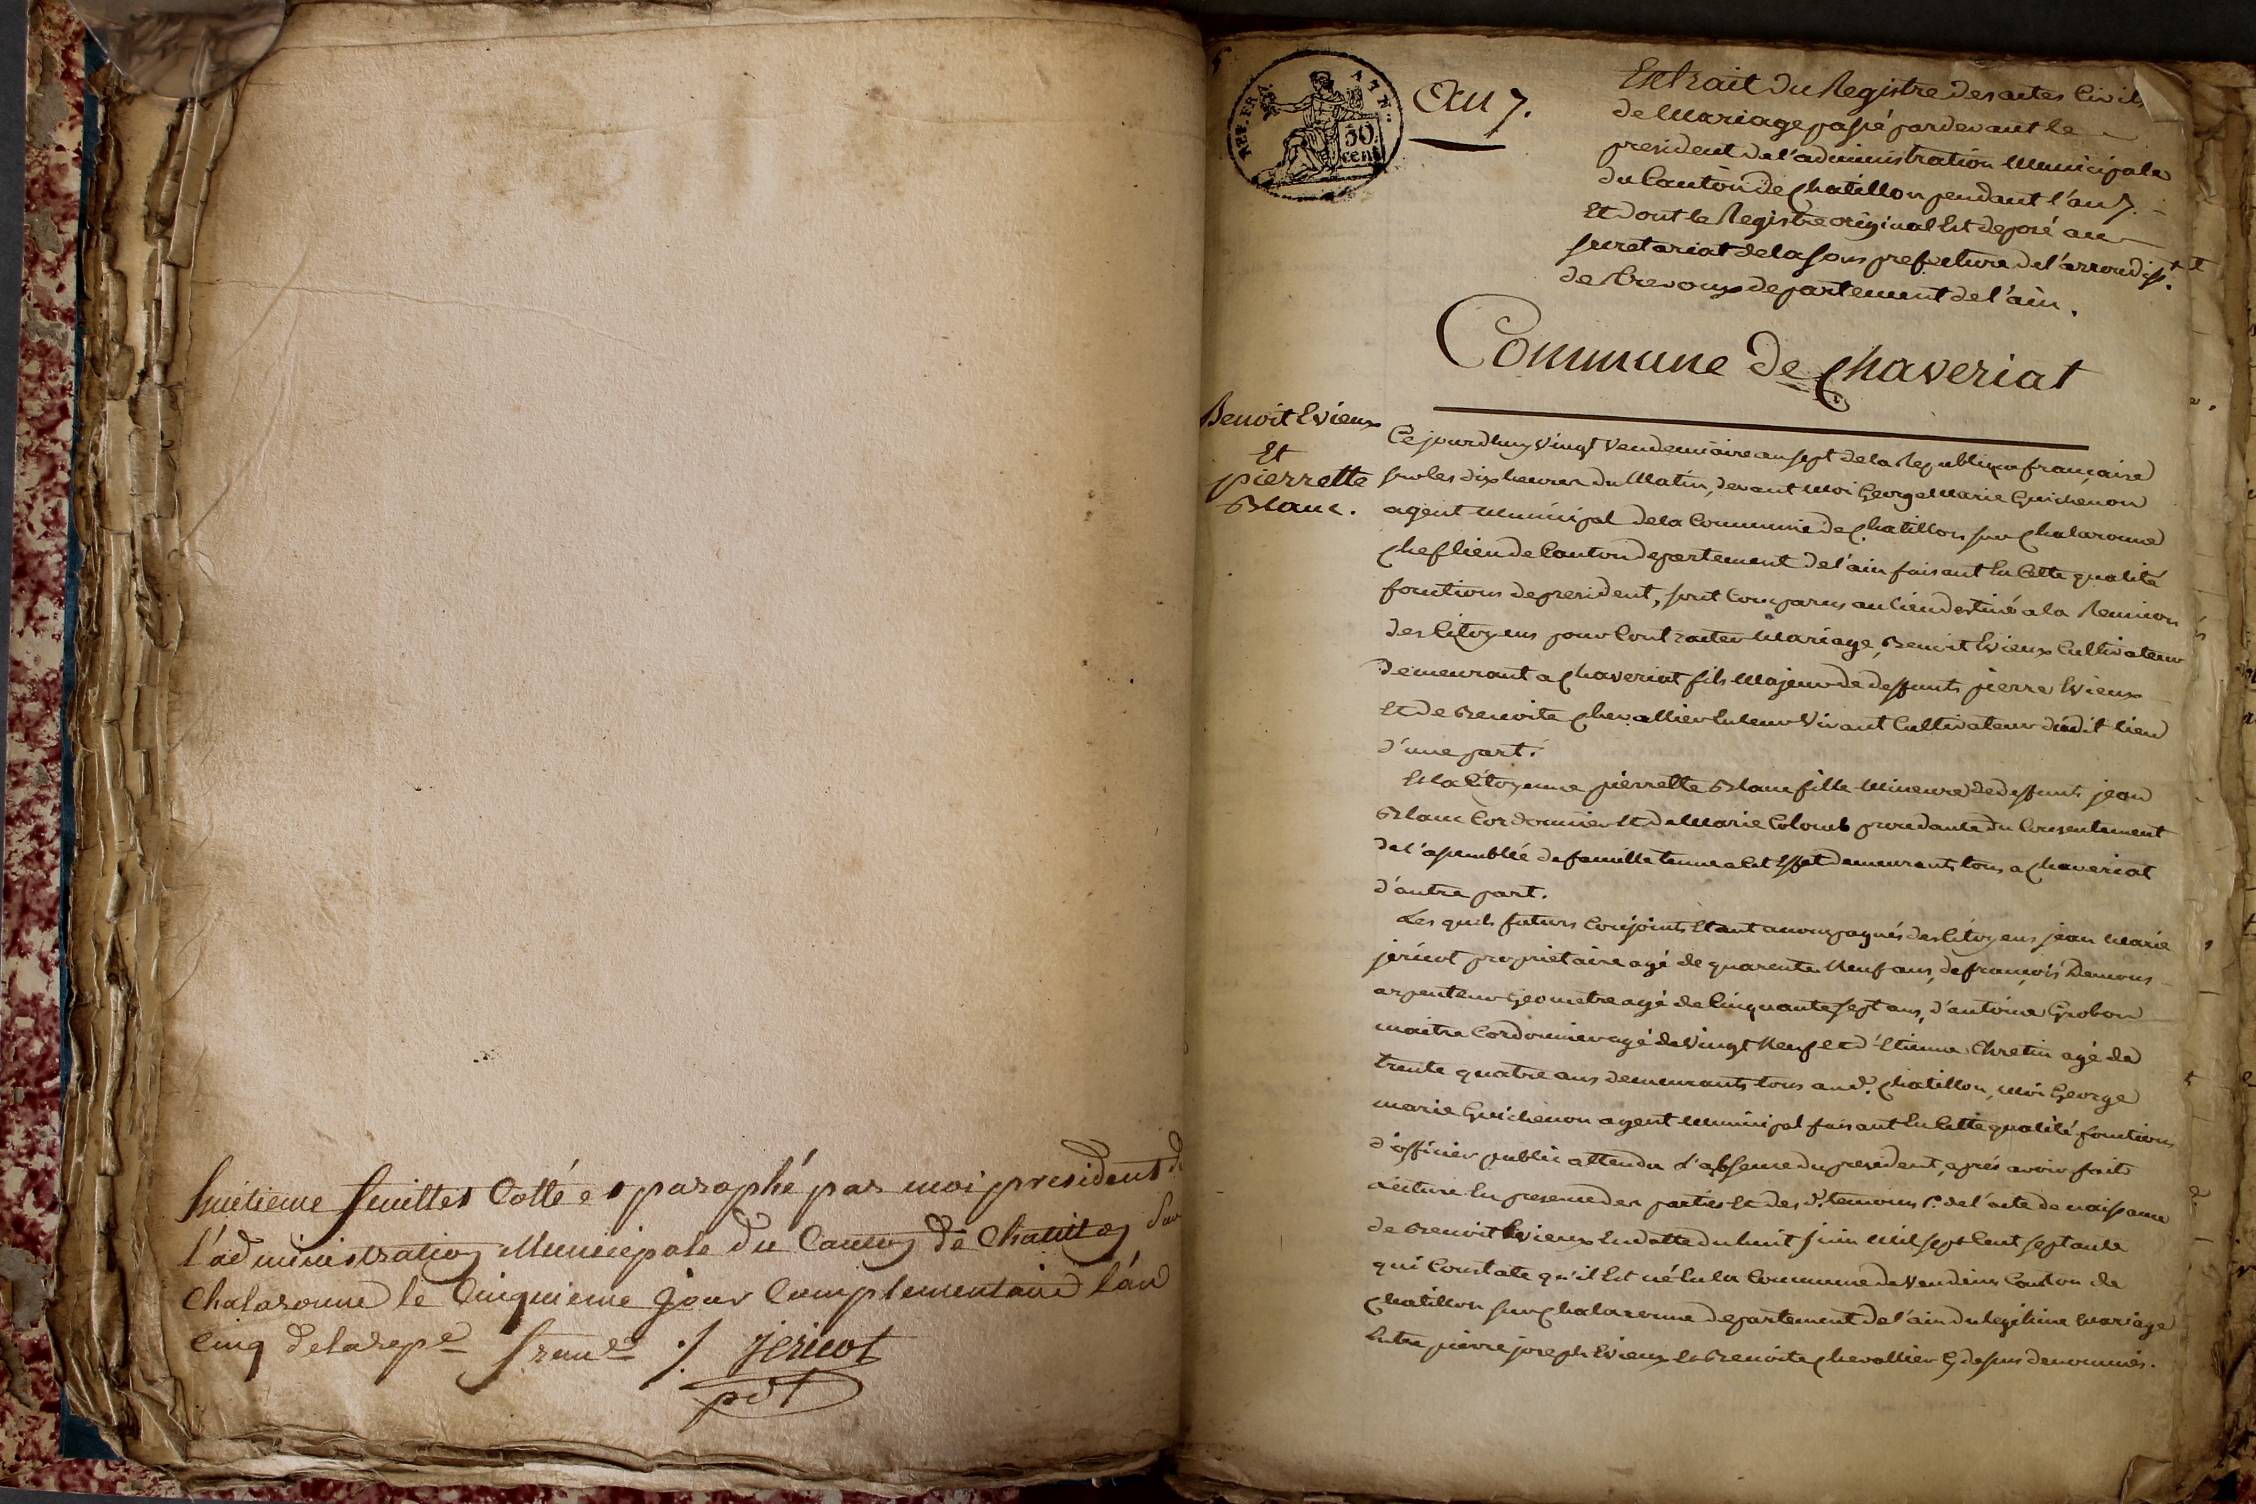 huitieme feuillet Cotté et paraphé par moi president de
l'administration Municipale du Canton de Chatillon Sur
Chalaronne le Cinquieme jour Complementaire l'an
cinq de la rep.e franc.se ./. jericot
pdt
REP. FRA. 50 cent
An 7.
Extrait du Registre des actes Civils
de Mariage passé pardevant le
president de l'administration Municipale
du Canton de Chatillon pendant l'an 7.
Et dont le Registre original Est deposé au
secretariat de la sous prefecture de l'arrondisst.
de Trevoux departement de l'ain.
Commune de Chaveriat
Benoit Evieux
Et
pierrette
Blanc.
Ce jourdhuy vingt vendemiaire an sept de la Republique française
sur les dix heures du Matin, devant Moi George Marie Guichenon
agent Municipal de la Commune de Chatillon sur Chalaronne
Chef lieu de Canton departement de l'ain faisant En Cette qualité
fonctions de president, sont Comparus au lieu destiné a la Reunion
des Citoyens pour Contracter Mariage, Benoit Evieux Cultivateur
demeurant a Chaveriat fils Majeur de deffunts pierre Evieux
Et de Benoite Chevallier En leur vivant Cultivateur dudit lieu
d'une part.
Et la Citoyenne pierrette Blanc fille Mineure de deffunts jean
Blanc Cordonnier Et de Marie Colomb procedante du Consentement
de l'assemblée de famille tenue a Cet Effet demeurants tous a Chaveriat
d'autre part.
Les quels futurs Conjoints Etant accompagnés des Citoyens jean Marie
jericot proprietaire agé de quarente Neuf ans, de françois Demons
arpenteur Géometre agé de Cinquante sept ans, d'antoine Grobon
maitre Cordonnier agé de vingt Neuf Et d'Etienne Chretin agé de
trente quatre ans demeurants tous aud. Chatillon, Moi George
marie Guichenon agent Municipal faisant En Cette qualité fonctions
d'officier public attendu l'absence du president, aprés avoir fait
Lecture En presence des parties Et des d. temoins 1.° de l'acte de naissance
de Benoit Evieux En datte du huit juin Mil sept Cent septante
qui Constate qu'il Est né En la Commune de Vandeins Canton de
Chatillon sur Chalaronne departement de l'ain du legitime Mariage
Entre pierre joseph Evieux Et Benoite Chevallier Cy dessus denommés.